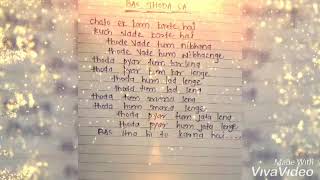 BAS THODA SA
chalo ek kam karte hai
kuch vade karte hai
thode vade tum nibhana
thode vade hum nibhaenge
thoda pyar tum kar lena
thoda pyar hum kar lenge
thoda tum lad lena
thoda hum lad lenge
thoda tum mana lena
thoda hum mana lenge
thoda pyar tum jata lena
thoda pyar hum jata lenge
Bas itna hi to karna hai....
Made With
VivaVideo